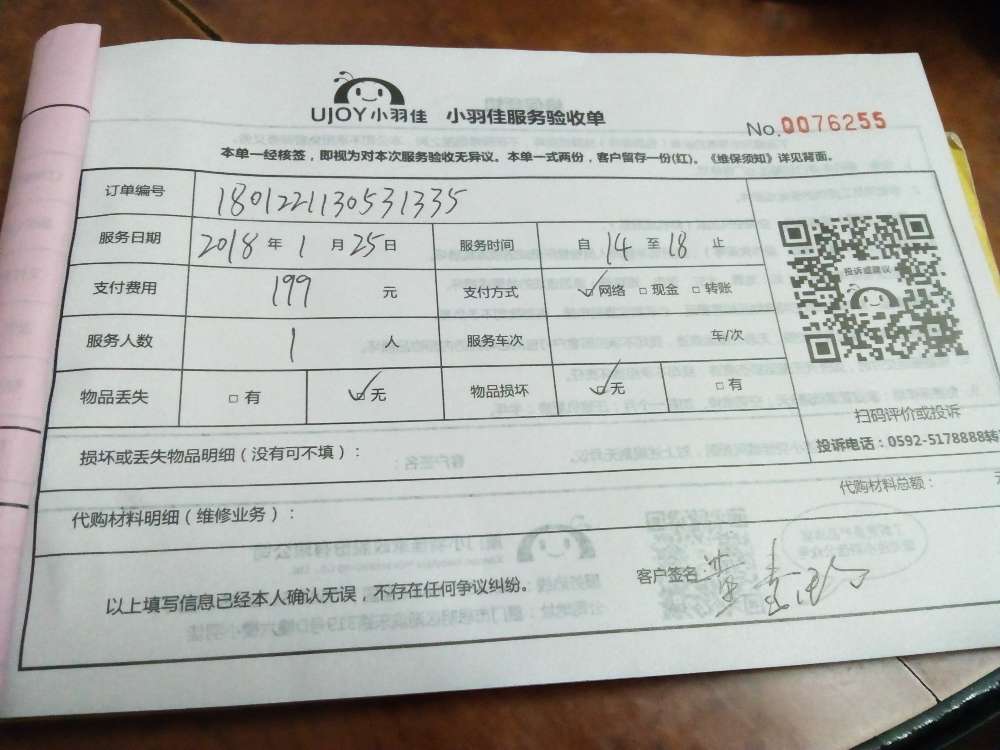 UJOY小羽佳 小羽佳服务验收单
No.0076255
本单一经核签，即视为对本次服务验收无异议。本单一式两份，客户留存一份(红)。《维保须知》详见背面。
订单编号 180122113053 1335
服务日期 2018 年 1 月 25 日 服务时间 自 14 至 18 止
支付费用 199 元 支付方式 ☑网络 □现金 □转账
服务人数 1 人 服务车次 车/次
物品丢失 □有 ☑无 物品损坏 ☑无 □有
投诉或建议
扫码评价或投诉
投诉电话：0592-5178888转
损坏或丢失物品明细（没有可不填）：
代购材料明细（维修业务）：
代购材料总额：
以上填写信息已经本人确认无误，不存在任何争议纠纷。
客户签名